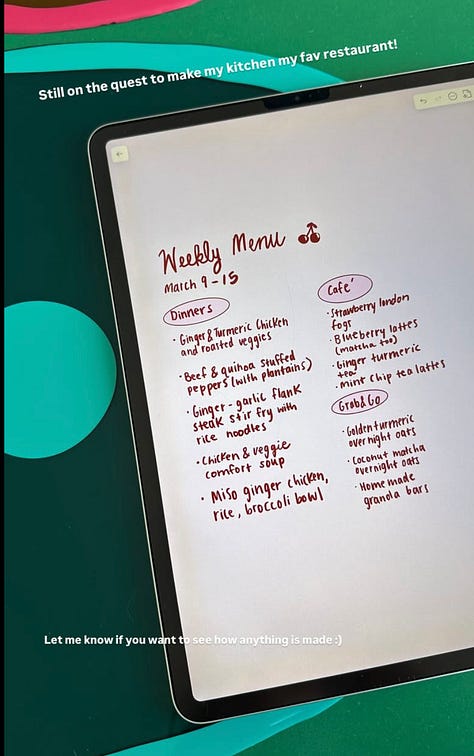 Still on the quest to make my kitchen my fav restaurant!
Weekly Menu
March 9-15
Dinners
· Ginger & Turmeric Chicken
and roasted veggies
· Beef & quinoa stuffed
peppers (with plantains)
· Ginger-garlic flank
steak stir fry with
rice noodles
· Chicken & veggie
comfort soup
· Miso ginger chicken,
rice, broccoli bowl
Cafe'
· Strawberry london
fogs
· Blueberry lattes
(matcha too)
· Ginger turmeric
tea
· Mint chip tea lattes
Grab&Go
· Golden turmeric
overnight oats
· Coconut matcha
overnight oats
· Homemade
granola bars
Let me know if you want to see how anything is made :)